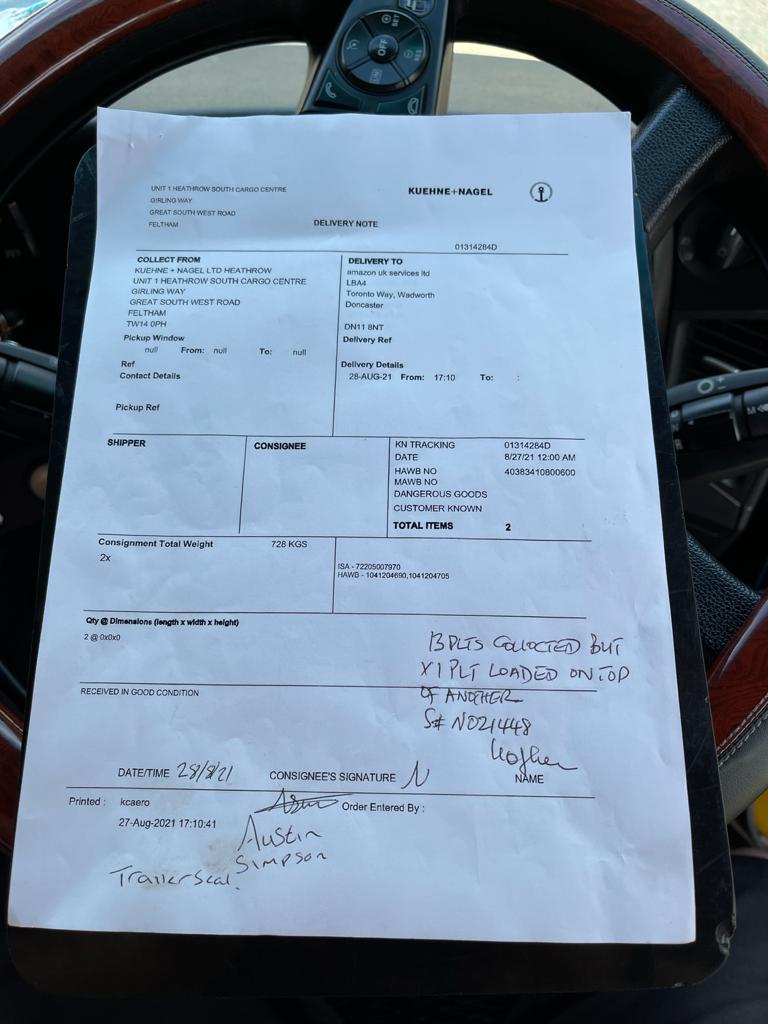 SET
OFF
RES
LIM
UNIT 1 HEATHROW SOUTH CARGO CENTRE
GIRLING WAY
GREAT SOUTH WEST ROAD
FELTHAM
KUEHNE+NAGEL
DELIVERY NOTE
01314284D
COLLECT FROM
KUEHNE + NAGEL LTD HEATHROW
UNIT 1 HEATHROW SOUTH CARGO CENTRE
GIRLING WAY
GREAT SOUTH WEST ROAD
FELTHAM
TW14 0PH
Pickup Window
null From: null To: null
Ref
Contact Details
Pickup Ref
DELIVERY TO
amazon uk services ltd
LBA4
Toronto Way, Wadworth
Doncaster
DN11 8NT
Delivery Ref
Delivery Details
28-AUG-21 From: 17:10 To: :
SHIPPER
CONSIGNEE
KN TRACKING 01314284D
DATE 8/27/21 12:00 AM
HAWB NO 40383410800600
MAWB NO
DANGEROUS GOODS
CUSTOMER KNOWN
TOTAL ITEMS 2
Consignment Total Weight 728 KGS
2x
ISA - 72205007970
HAWB - 1041204690,1041204705
Qty @ Dimensions (length x width x height)
2 @ 0x0x0
13 PLTS COLLOCTED BUT
X1 PLT LOADED ON TOP
OF ANOTHER
S# N021448
RECEIVED IN GOOD CONDITION
DATE/TIME 28/8/21 CONSIGNEE'S SIGNATURE NAME
Printed : kcaero Order Entered By :
27-Aug-2021 17:10:41
Austin
Simpson
Trailer Seal.